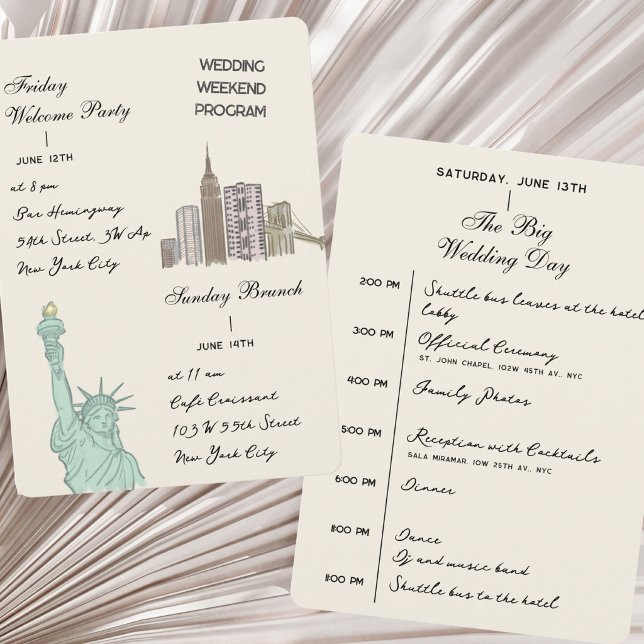 Friday
Welcome Party
JUNE 12TH
at 8 pm
Bar Hemingway
54th Street, 3W Ap
New York City
WEDDING
WEEKEND
PROGRAM
Sunday Brunch
JUNE 14TH
at 11 am
Café Croissant
103 W 55th Street
New York City
SATURDAY, JUNE 13TH
The Big
Wedding Day
2:00 PM
Shuttle bus leaves at the hotel
lobby
3:00 PM
Official Ceremony
ST. JOHN CHAPEL, 102W 45TH AV., NYC
4:00 PM
Family Photos
5:00 PM
Reception with Cocktails
SALA MIRAMAR, 10W 25TH AV., NYC
6:00 PM
Dinner
11:00 PM
Dance
Dj and music band
11:00 PM
Shuttle bus to the hotel